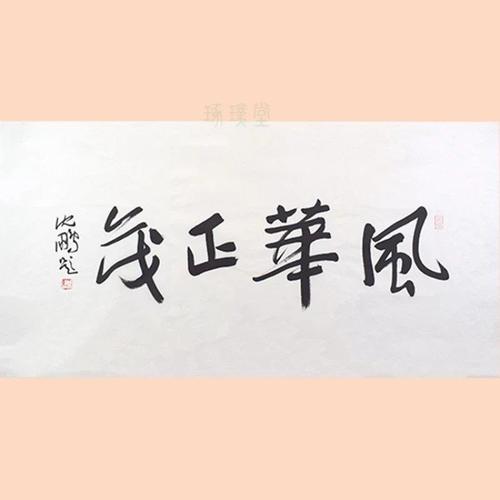 琢璞堂
風華正茂
沈鹏题